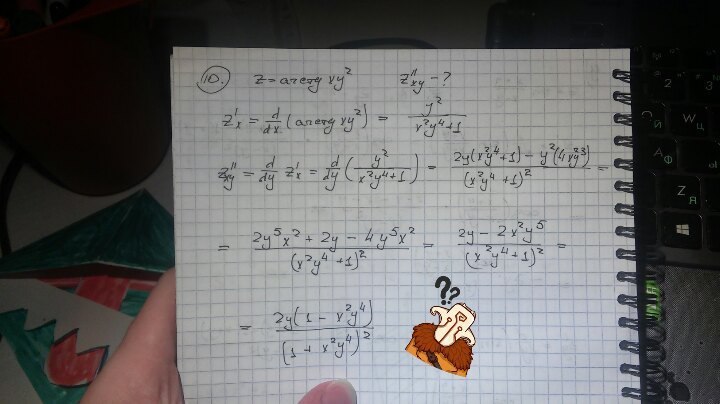 10. z = arctg xy² z''xy - ?
z'x = d/dx (arctg xy²) = y²/(x²y⁴+1)
z''xy = d/dy z'x = d/dy (y²/(x²y⁴+1)) = (2y(x²y⁴+1) - y²(4x²y³))/(x²y⁴+1)² =
= (2y⁵x² + 2y - 4y⁵x²)/(x²y⁴+1)² = (2y - 2x²y⁵)/(x²y⁴+1)² =
= 2y(1 - x²y⁴)/(1 + x²y⁴)²
??
Й Ц W
Ф A
Я Z